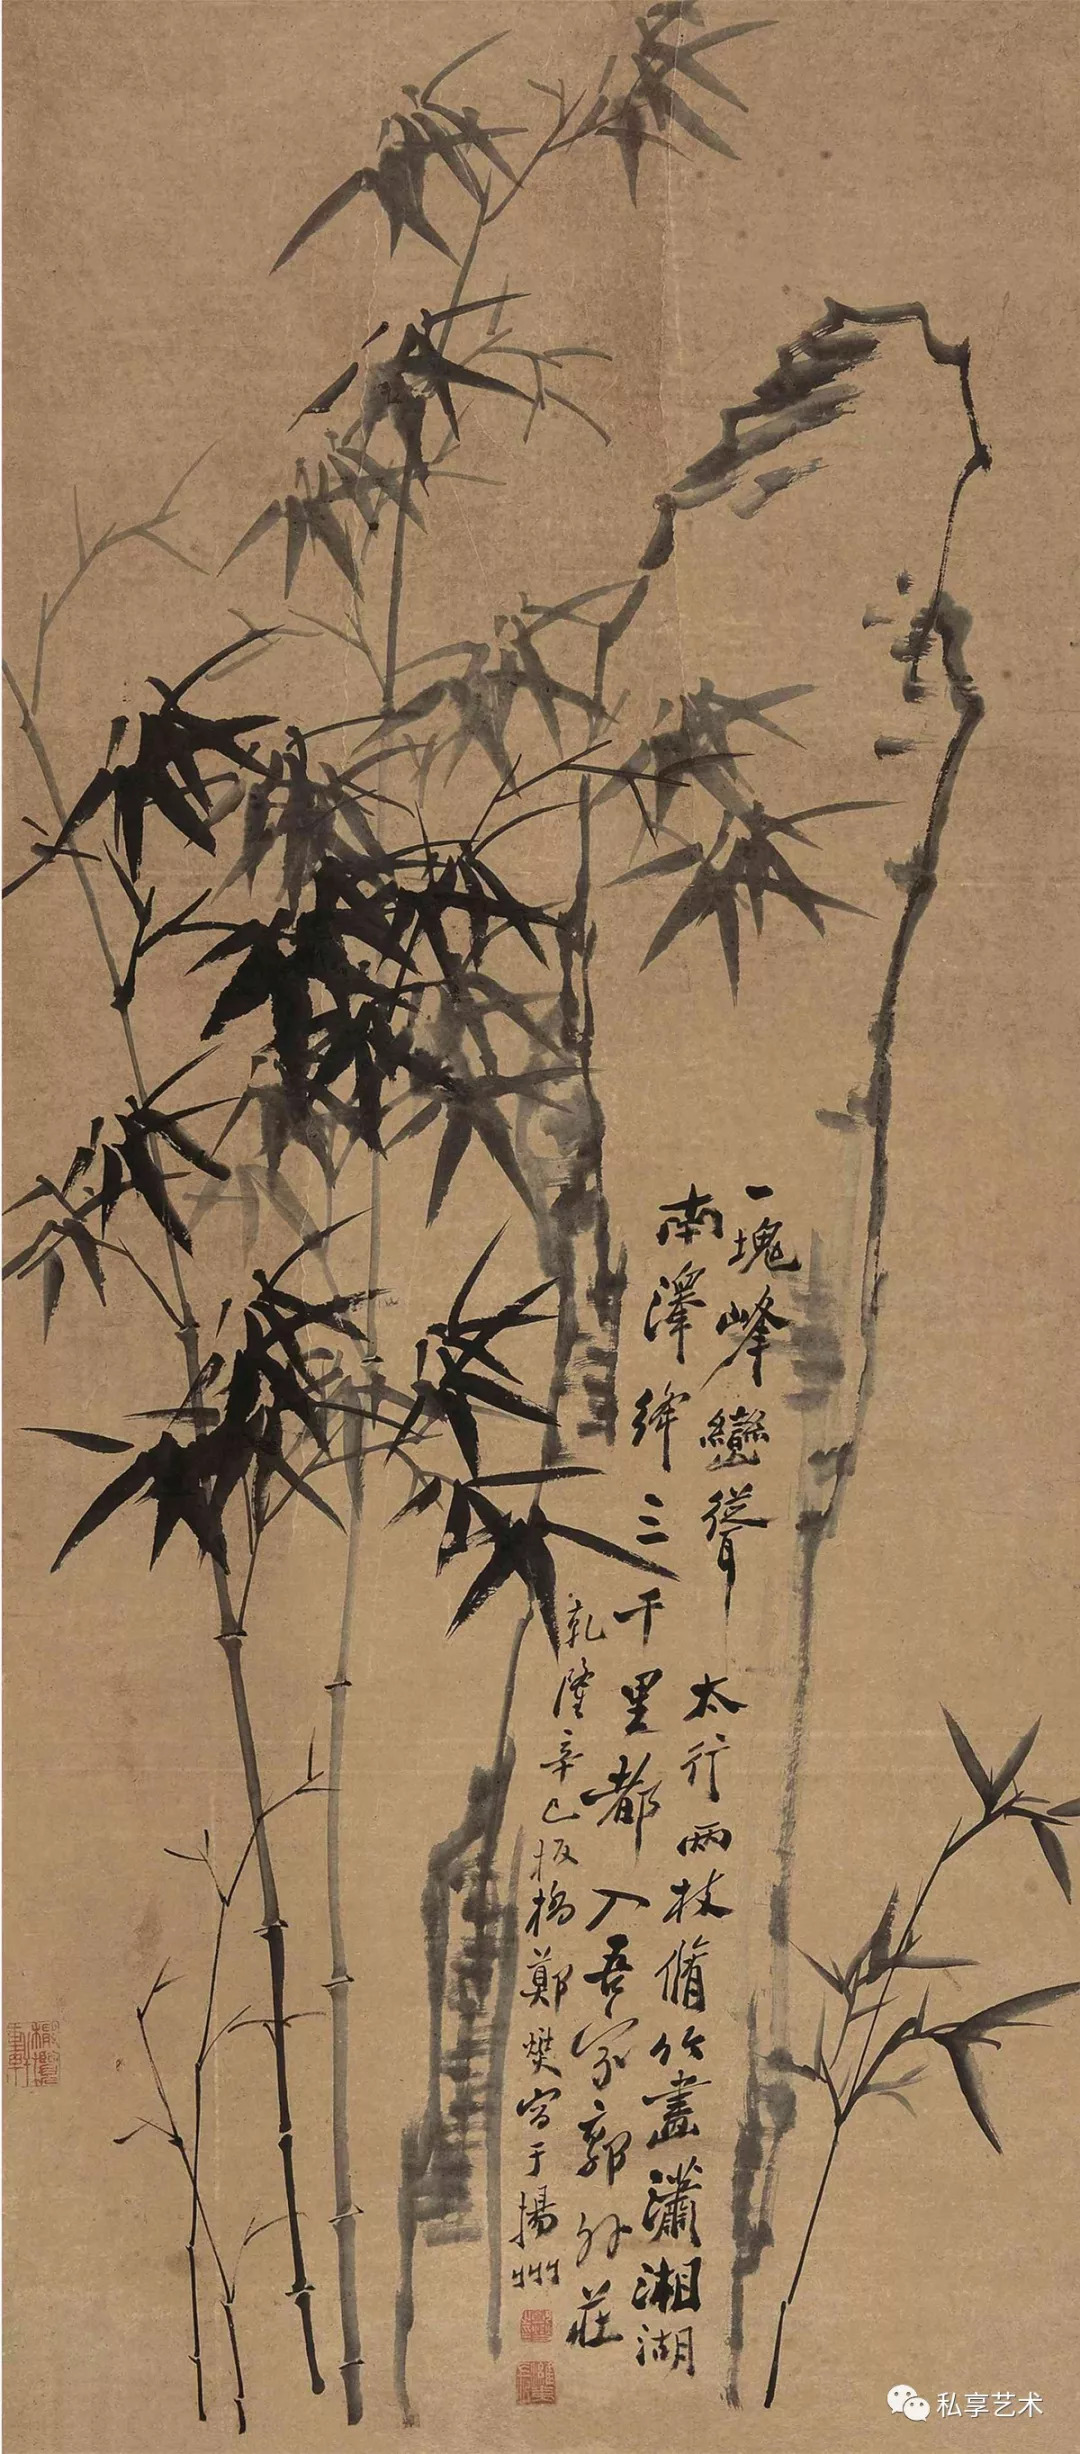 一塊峰巒聳太行兩枝脩竹畫瀟湘湖
南澤絳三千里都入吾家郭外莊
乾隆辛巳板橋鄭燮寫于揚州
私享艺术